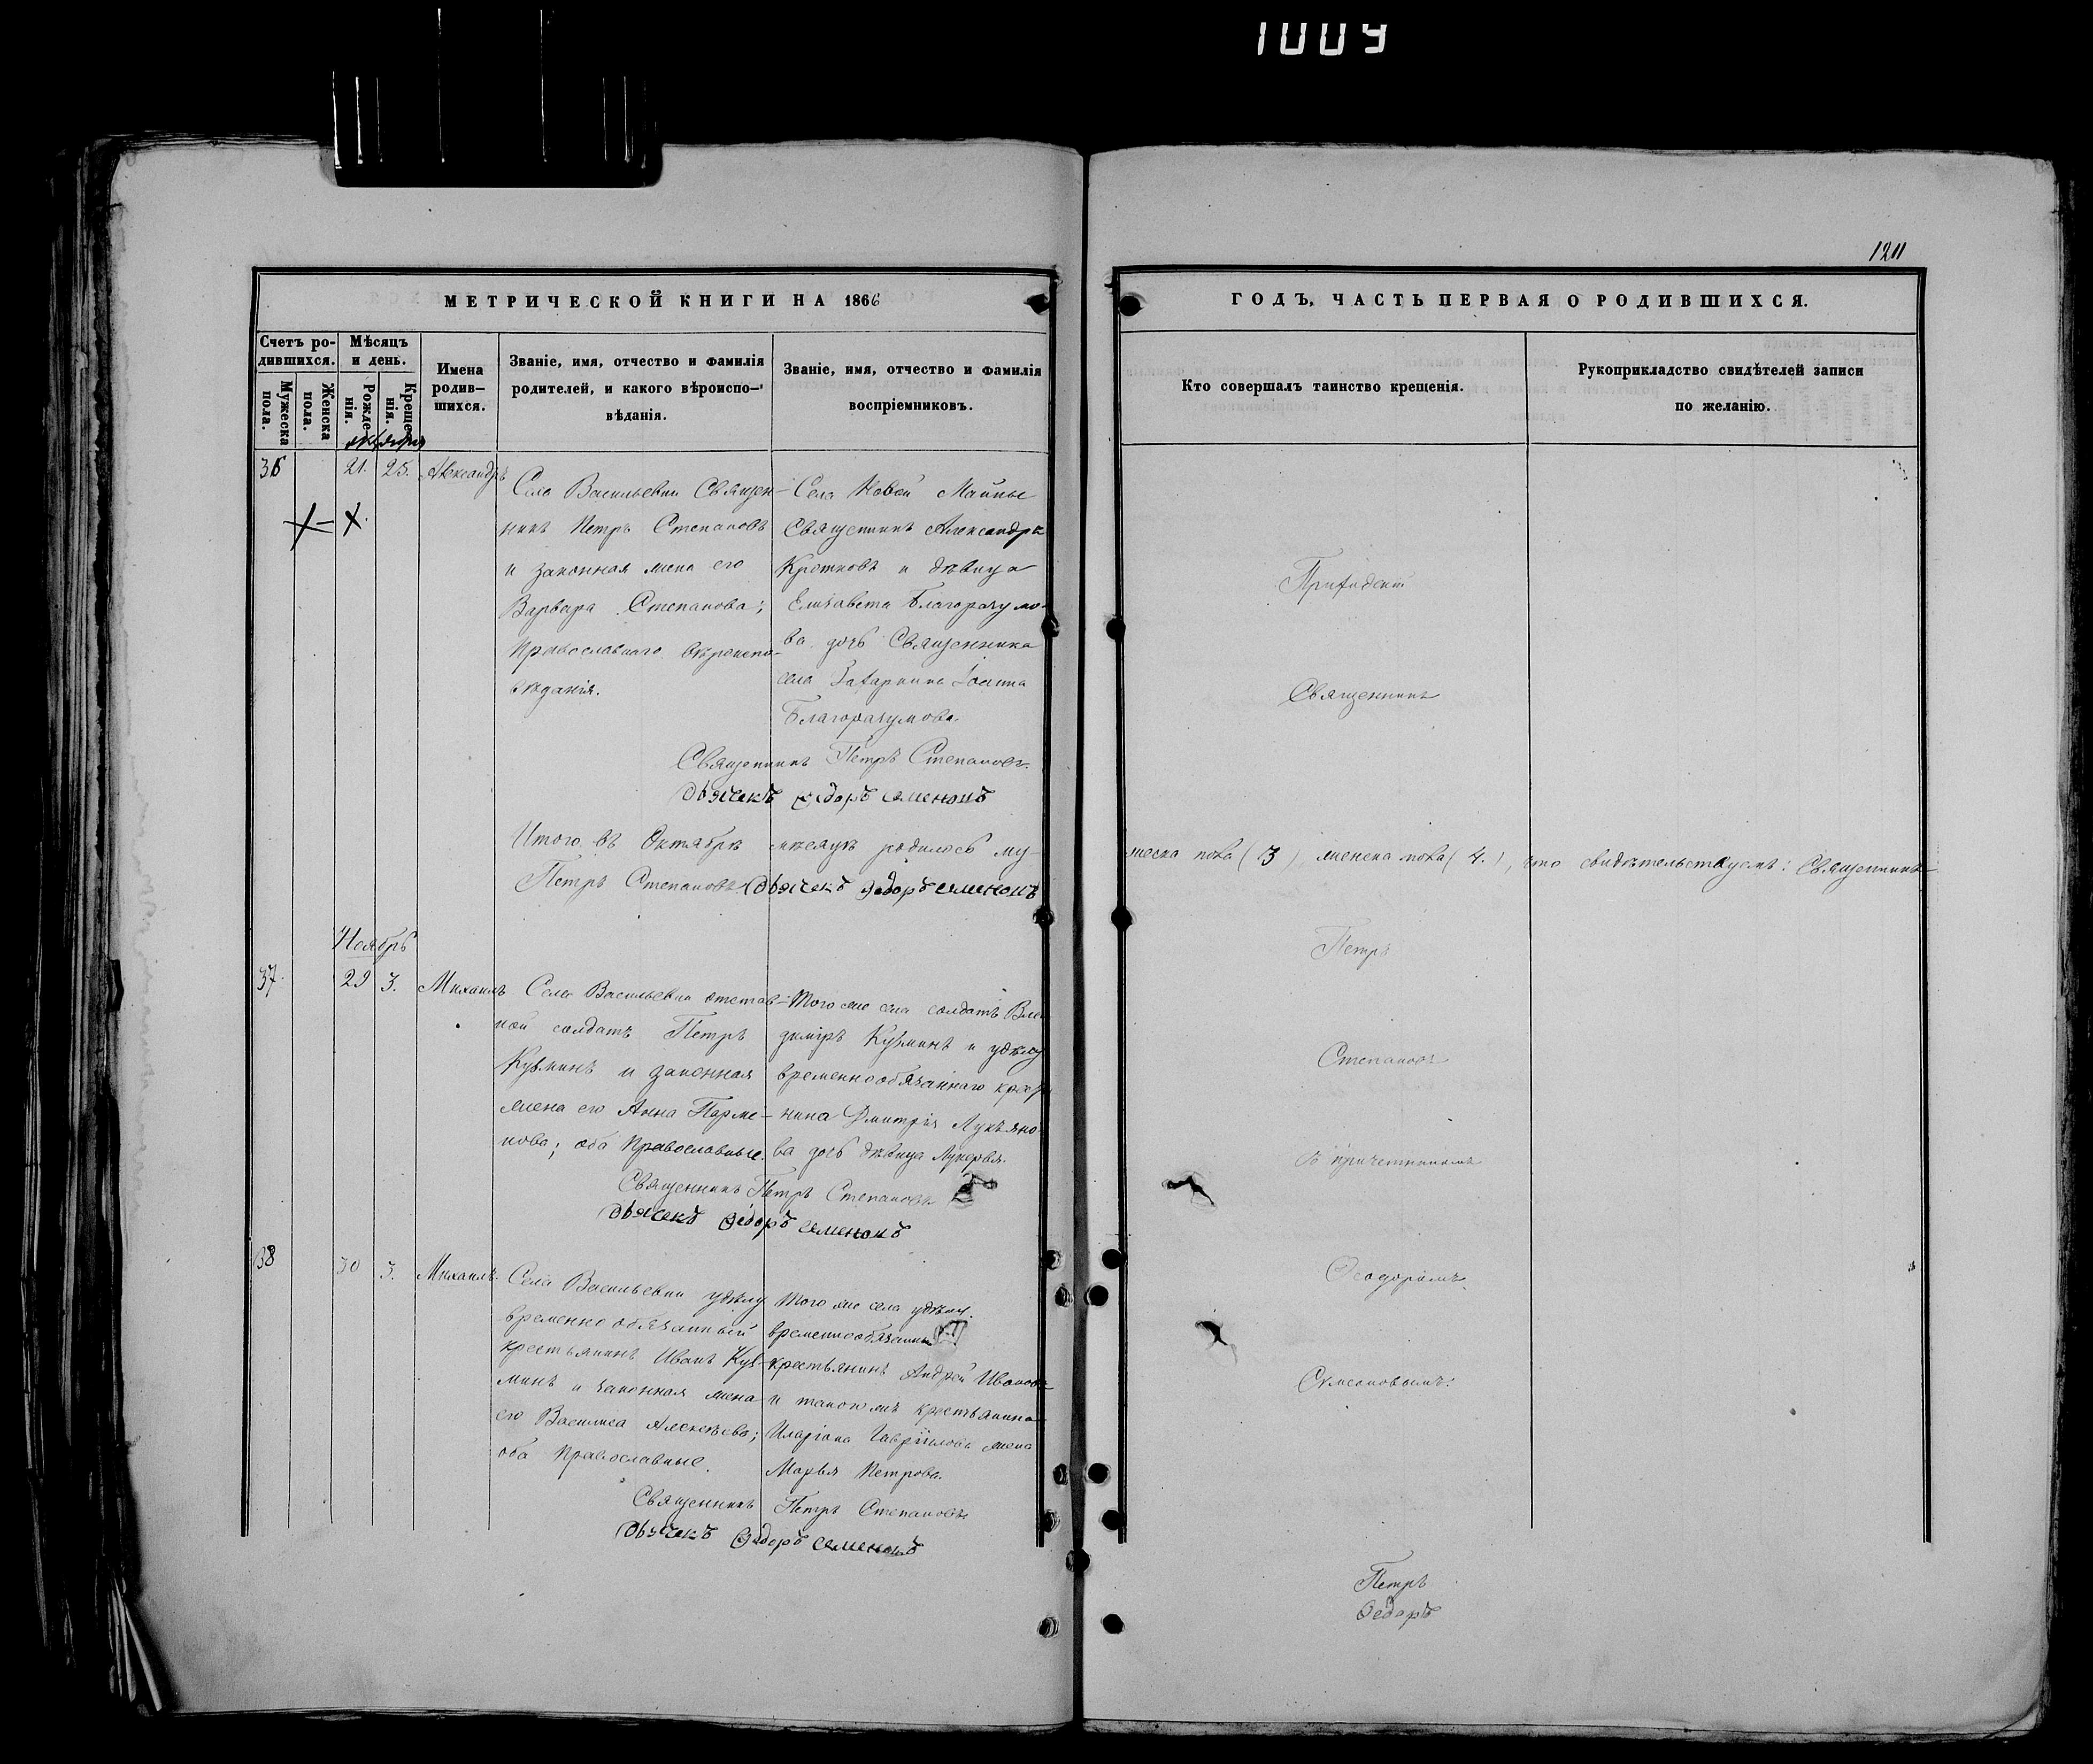 1009
1211
МЕТРИЧЕСКОЙ КНИГИ НА 1866
ГОДЪ, ЧАСТЬ ПЕРВАЯ О РОДИВШИХСЯ.
Счетъ родившихся.
Мужеска пола.
Женска пола.
Мѣсяцъ и день.
Рожденія.
Крещенія.
Имена родившихся.
Званіе, имя, отчество и фамилія родителей, и какого вѣроисповѣданія.
Званіе, имя, отчество и фамилія воспріемниковъ.
Кто совершалъ таинство крещенія.
Рукоприкладство свидѣтелей записи по желанію.
36
21. 25. Александръ
Села Васильевки Священ-
никъ Петръ Степановъ
и законная жена его
Варвара Степанова;
Православнаго вѣроиспо-
вѣданія.
Села Новой Майны
Священникъ Александръ
и дѣвица
Елизавета Благоразумо-
ва дочь Священника
села Іоанна
Благоразумова.
Священникъ Петръ Степановъ.
Дьячекъ Федоръ Семеновъ
Итого въ Октябрѣ мѣсяцѣ родилось му-
жеска пола (13) женска пола (4.), что свидѣтельствуемъ: Священникъ
Петръ Степановъ Дьячекъ Федоръ Семеновъ
Ноябрь
37. 29 3. Михаилъ
Села Васильевки отстав-
ной солдатъ Петръ
Кузминъ и законная
жена его Анна Парме-
нова; оба Православные.
Того же села солдатъ Вла-
диміръ Кузминъ и удѣлу
временнообязаннаго крестья
нина Дмитрія Лукьяно-
ва дочь дѣвица Лукерья.
Священникъ Петръ Степановъ
Дьячекъ Федоръ Семеновъ
38 30 3. Михаилъ.
Села Васильевки удѣлу
временно обязанный
крестьянинъ Иванъ Куз-
минъ и законная жена
его Васлиса Алексѣева;
оба Православные.
Того же села удѣлу.
временнообязанный
крестьянинъ Андрей Ивановъ
и крестьянина
Иларіона Гавріилова жена
Марья Петрова.
Священникъ Петръ Степановъ
Дьячекъ Федоръ Семеновъ
Священникъ
Петръ
Степановъ
съ причетникомъ
Ѳеодоромъ
Семеновымъ:
Петръ
Федоръ